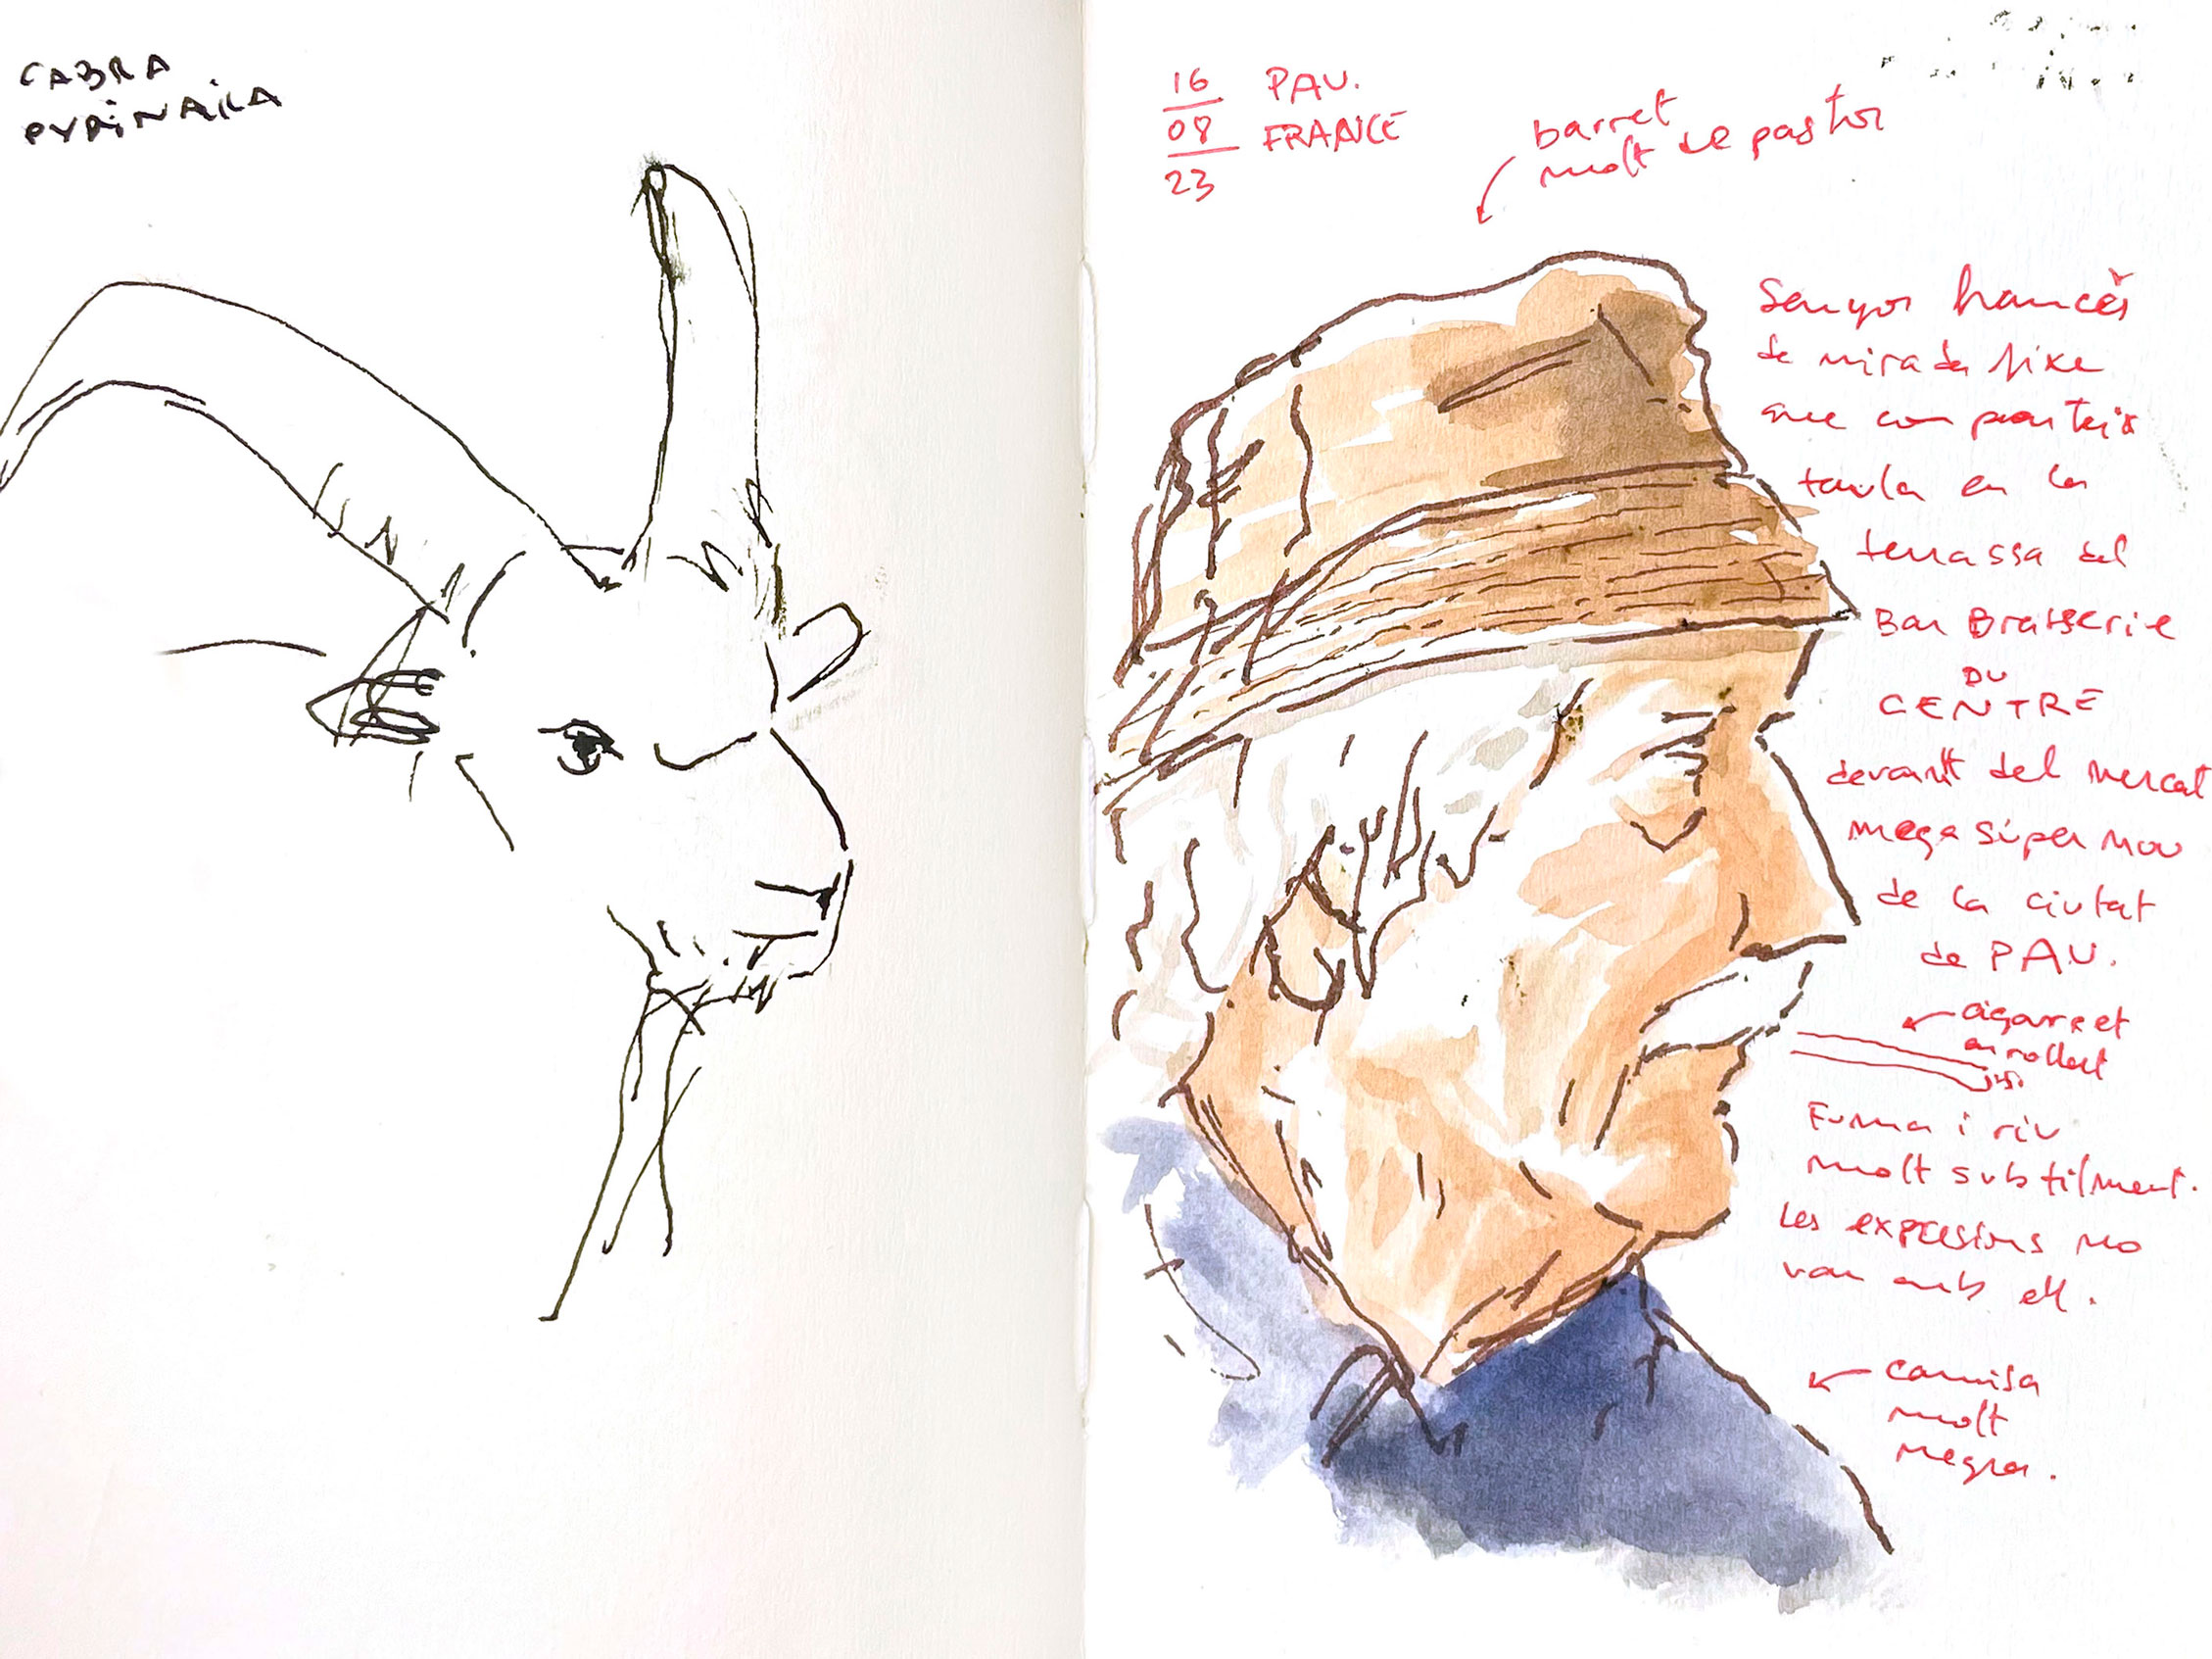 CABRA
PYRINAICA
16
08
23
PAU.
FRANCE
barret
molt de pastor
Senyor francès
de mirada fixe
que comparteix
taula en la
terrassa del
Bar Brasserie
DU
CENTRE
devant del mercat
mega súper nou
de la ciutat
de PAU.
cigarret
enrollat
Fuma i riu
molt subtilment.
Les expresions no
van amb ell.
camisa
molt
negra.